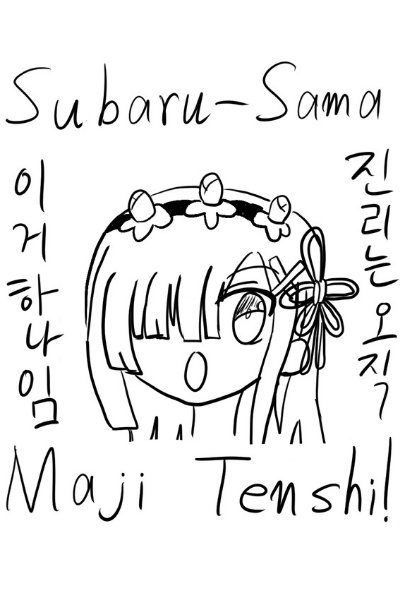 Subaru-Sama
진리는오직
이거하나임
Maji Tenshi!